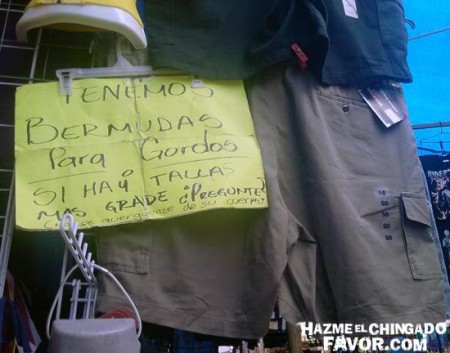 TENEMOS
BERMUDAS
Para Gordos
SI HAY TALLAS
MAS GRADE ¿PREGUNTE?
de su cuerpo
50
50
50
50
HAZME EL CHINGADO
FAVOR.COM